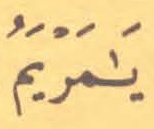 يَٰمَرْيَمُ